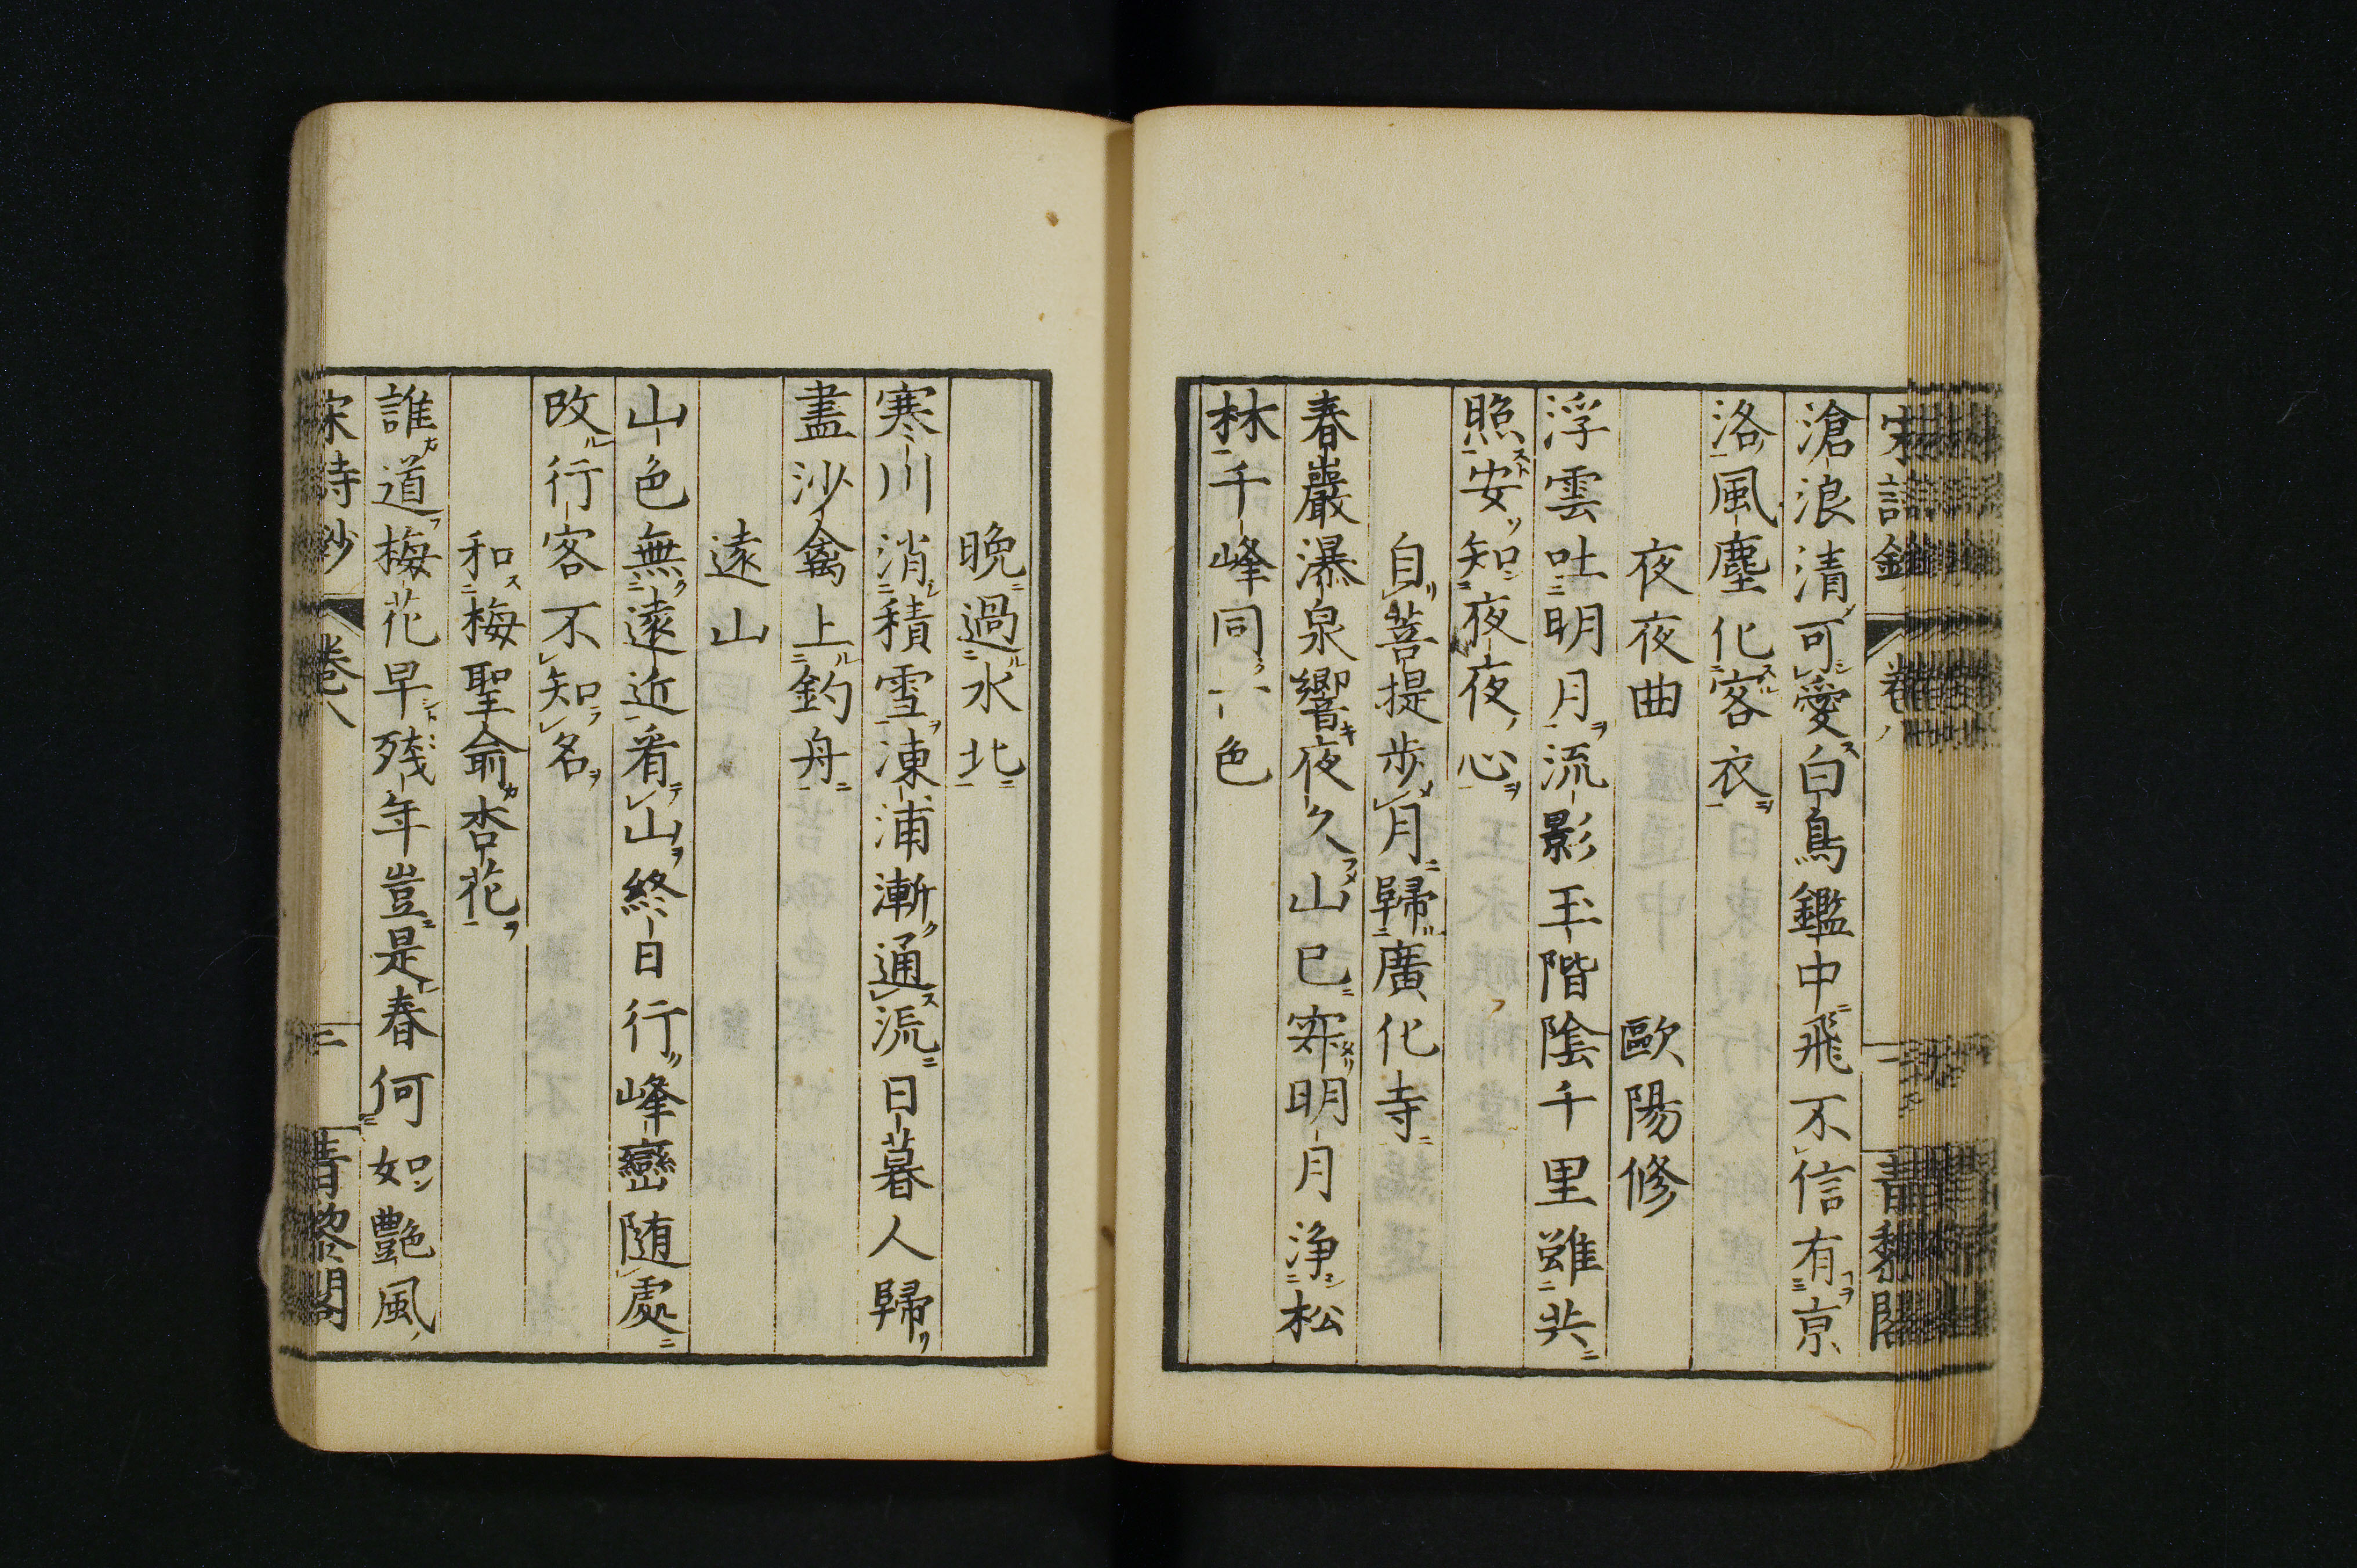 滄浪清可愛白鳥鑑中飛不信有京
洛風塵化客衣
夜夜曲 歐陽修
浮雲吐明月流影玉階陰千里雖共
照安知夜夜心
自菩提步月歸廣化寺
春巖瀑泉響夜久山已寂明月淨松
林千峰同一色
晚過水北
寒川消積雪凍浦漸通流日暮人歸
盡沙禽上釣舟
遠山
山色無遠近看山終日行峰巒随處
改行客不知名
和梅聖俞杏花
誰道梅花早殘年豈是春何如艷風
宋詩鈔 卷八 二 青藜閣